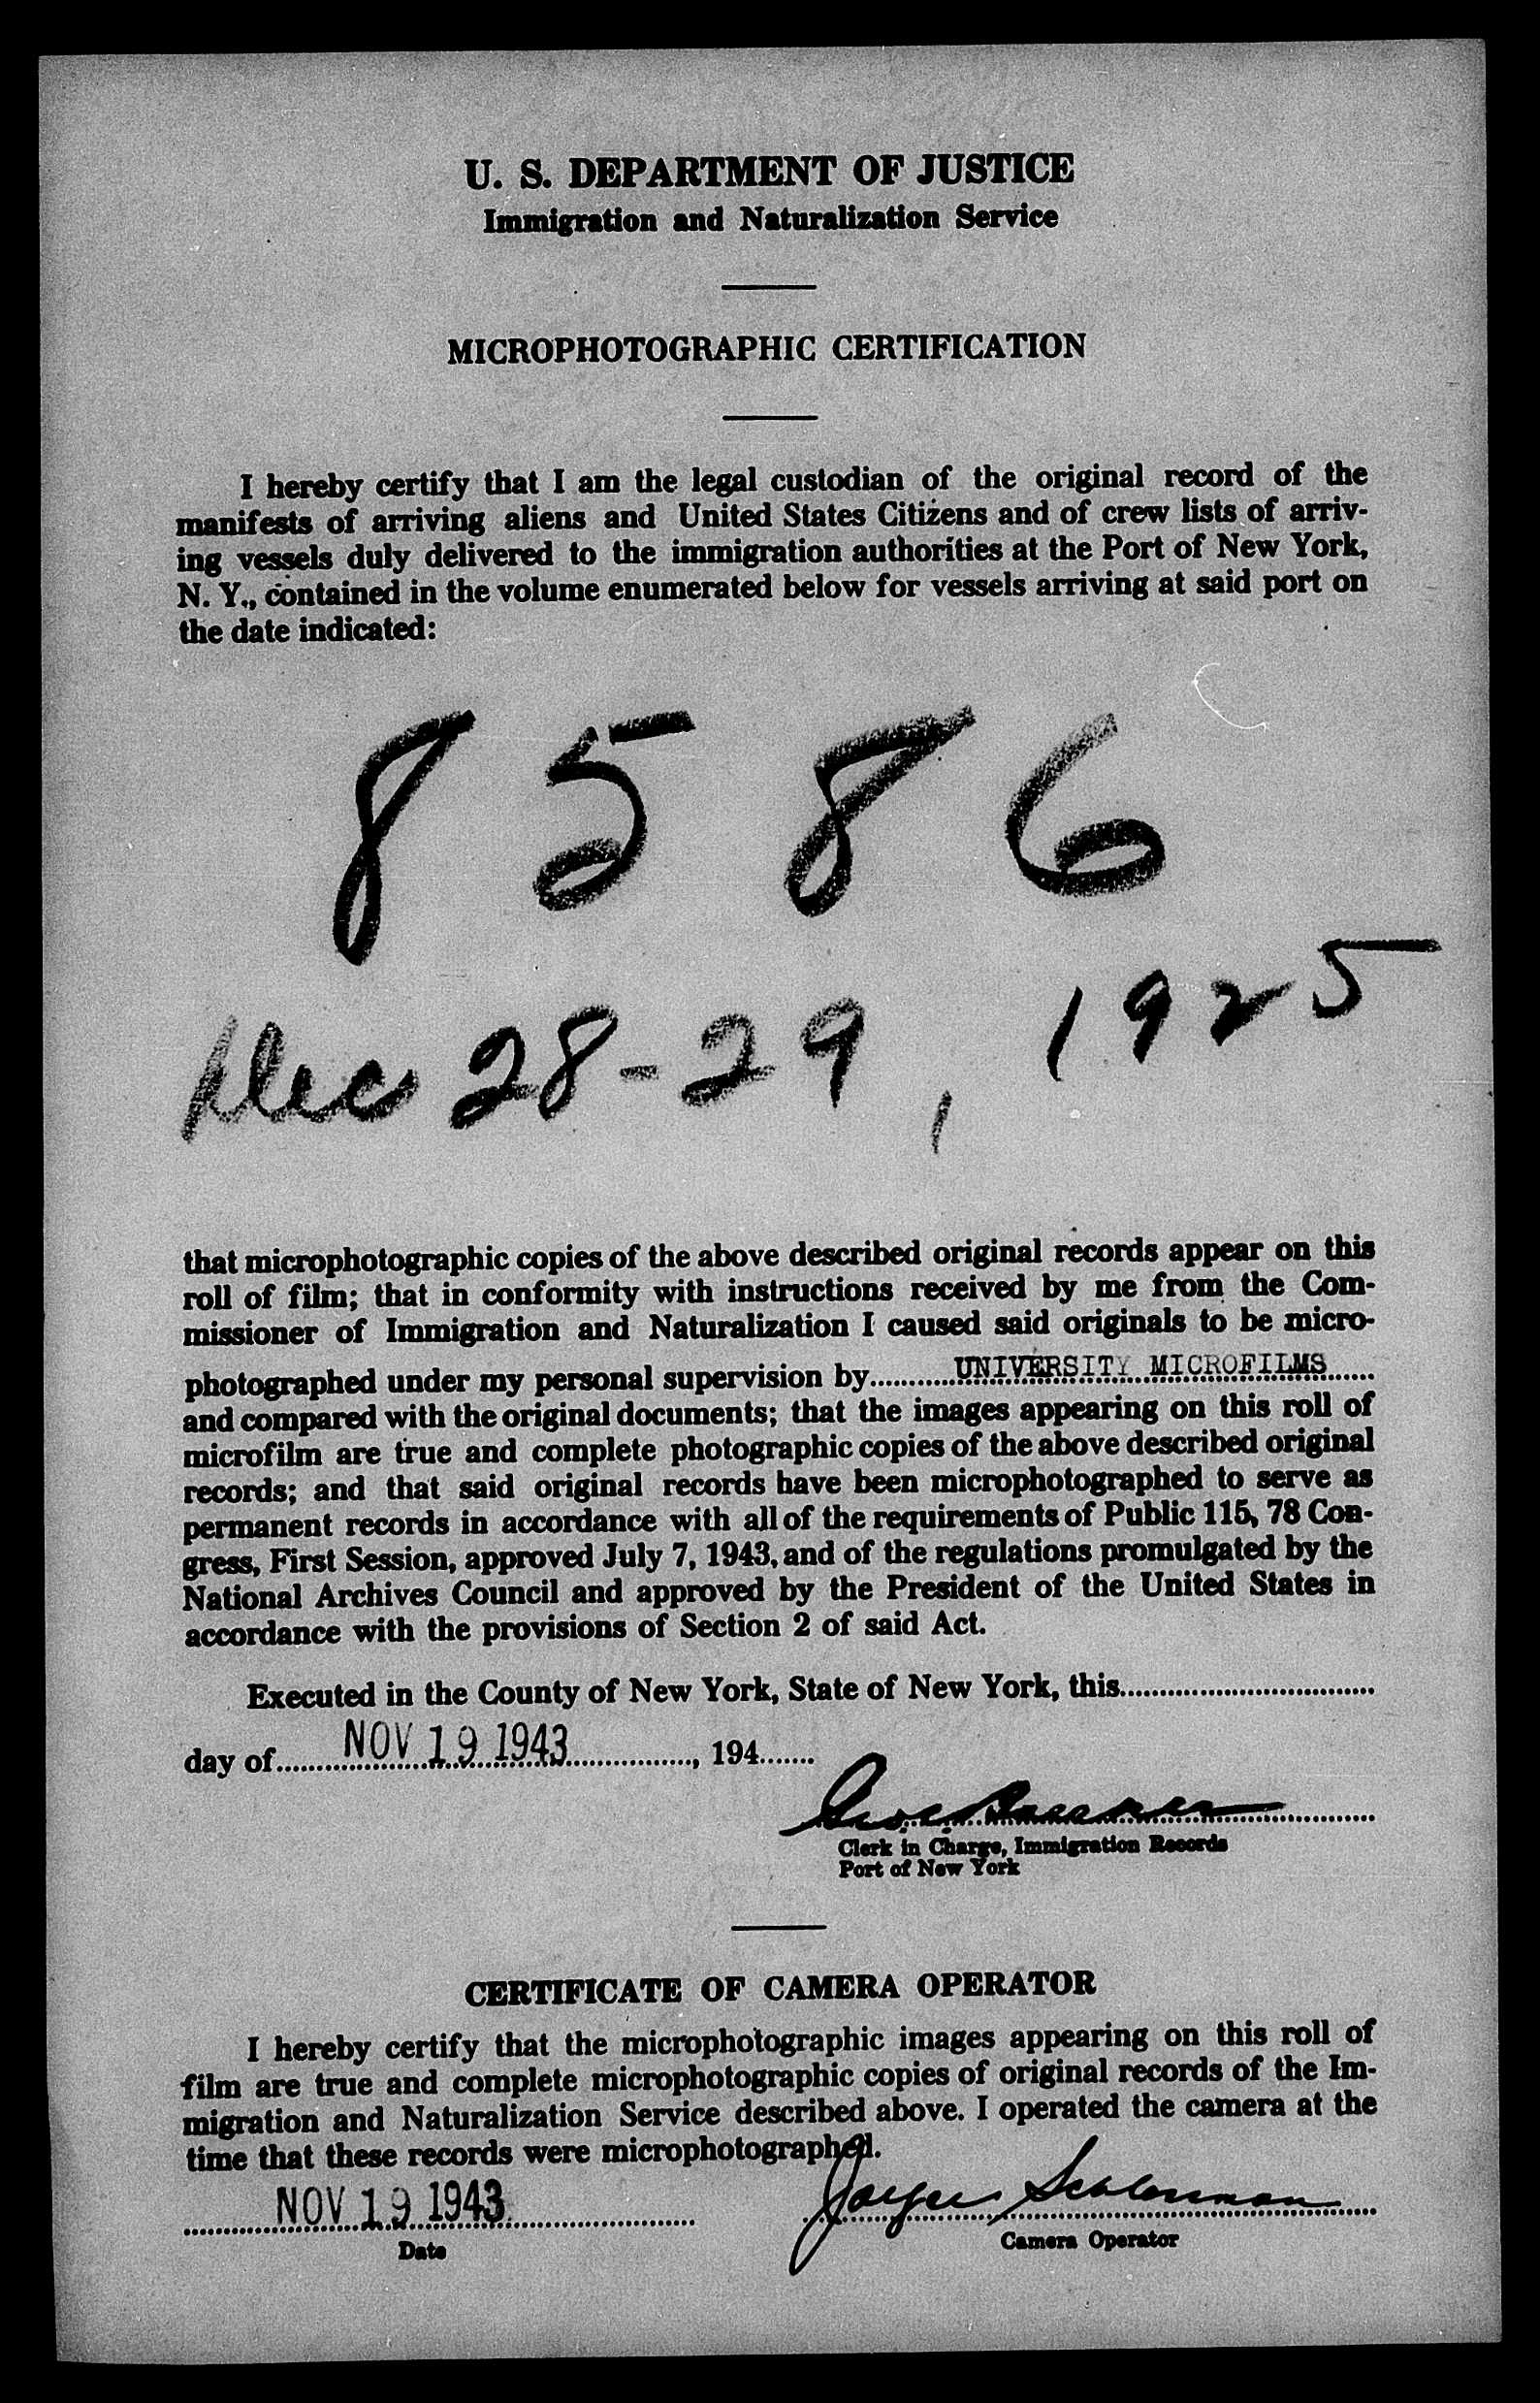 U. S. DEPARTMENT OF JUSTICE
Immigration and Naturalization Service
MICROPHOTOGRAPHIC CERTIFICATION
I hereby certify that I am the legal custodian of the original record of the
manifests of arriving aliens and United States Citizens and of crew lists of arriv-
ing vessels duly delivered to the immigration authorities at the Port of New York,
N. Y., contained in the volume enumerated below for vessels arriving at said port on
the date indicated:
8586
Dec 28-29, 1925
that microphotographic copies of the above described original records appear on this
roll of film; that in conformity with instructions received by me from the Com-
missioner of Immigration and Naturalization I caused said originals to be micro-
photographed under my personal supervision by UNIVERSITY MICROFILMS
and compared with the original documents; that the images appearing on this roll of
microfilm are true and complete photographic copies of the above described original
records; and that said original records have been microphotographed to serve as
permanent records in accordance with all of the requirements of Public 115, 78 Con-
gress, First Session, approved July 7, 1943, and of the regulations promulgated by the
National Archives Council and approved by the President of the United States in
accordance with the provisions of Section 2 of said Act.
Executed in the County of New York, State of New York, this
day of NOV 19 1943, 194
Clerk in Charge, Immigration Records
Port of New York
CERTIFICATE OF CAMERA OPERATOR
I hereby certify that the microphotographic images appearing on this roll of
film are true and complete microphotographic copies of original records of the Im-
migration and Naturalization Service described above. I operated the camera at the
time that these records were microphotographed.
NOV 19 1943
Date
Camera Operator